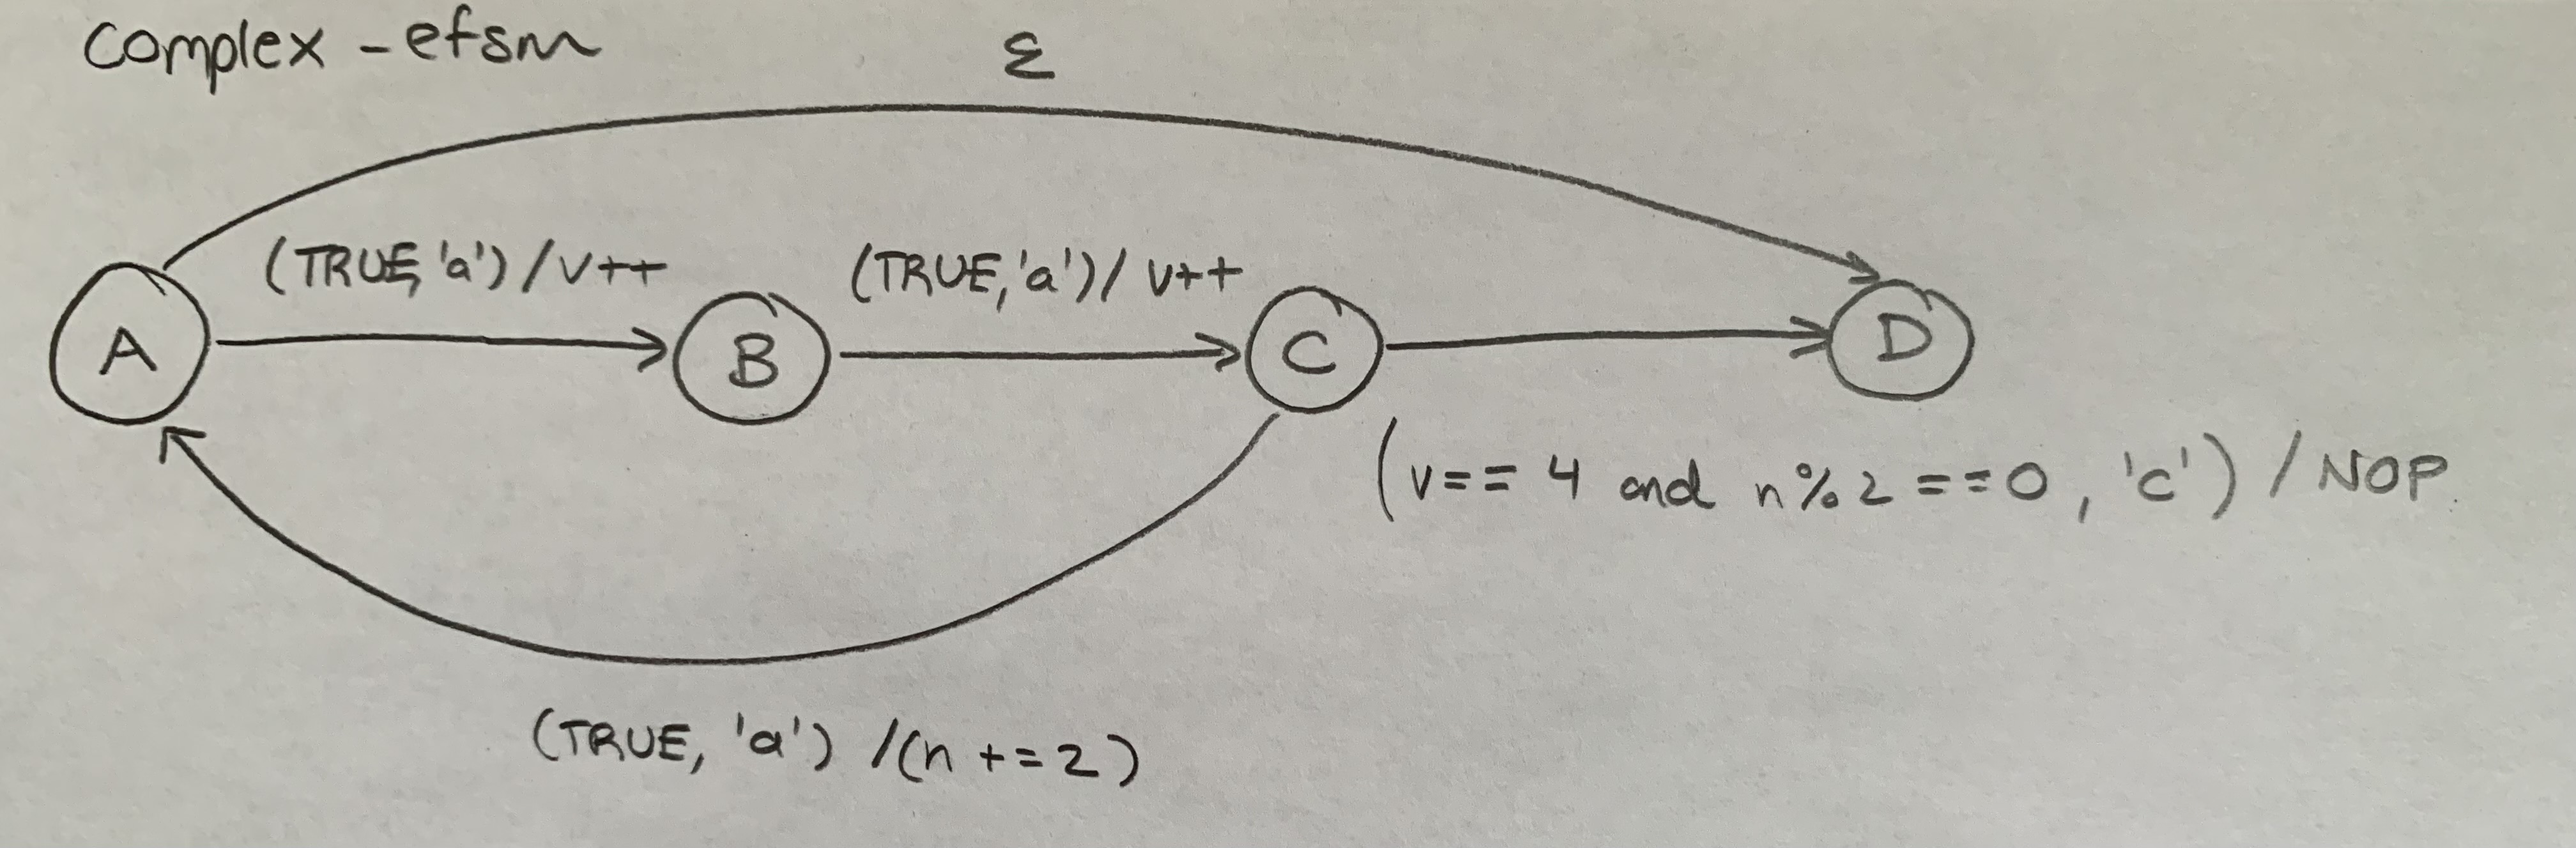 complex-efsm
ε
(TRUE, 'a') / v++
(TRUE, 'a') / v++
A
B
C
D
(v == 4 and n % 2 == 0, 'c') / NOP
(TRUE, 'a') / (n += 2)